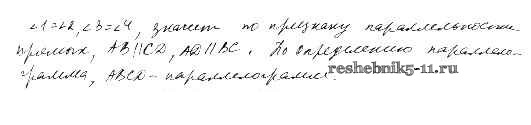 ∠1=∠2, ∠3=∠4, значит по признаку параллельности
прямых, AB||CD, AD||BC. По определению параллело-
грамма, ABCD - параллелограмм.
reshebnik5-11.ru